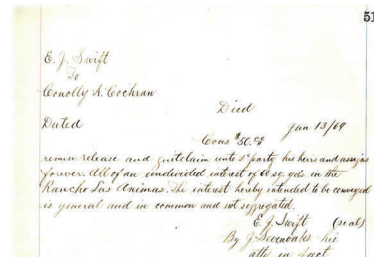 51
E. J. Swift
To
Conolly R. Cochran
Died
Dated Jan 13/69
Cons $50.00
remise release and quitclaim unto 2d party his heirs and assigns
forever. All of an undivided interest of 60 sq. yds. in the
Rancho Las Animas. The interest hereby intended to be conveyed
is general and in common and not seggregated.
E. J. Swift (seal)
By J. his
atty in fact